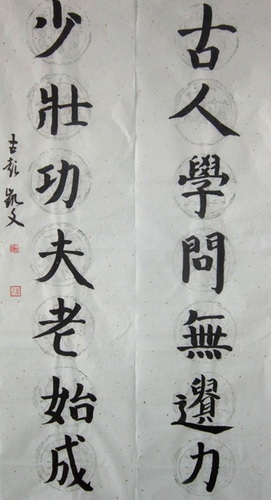 古人學問無遺力
少壯功夫老始成
古彭凱文